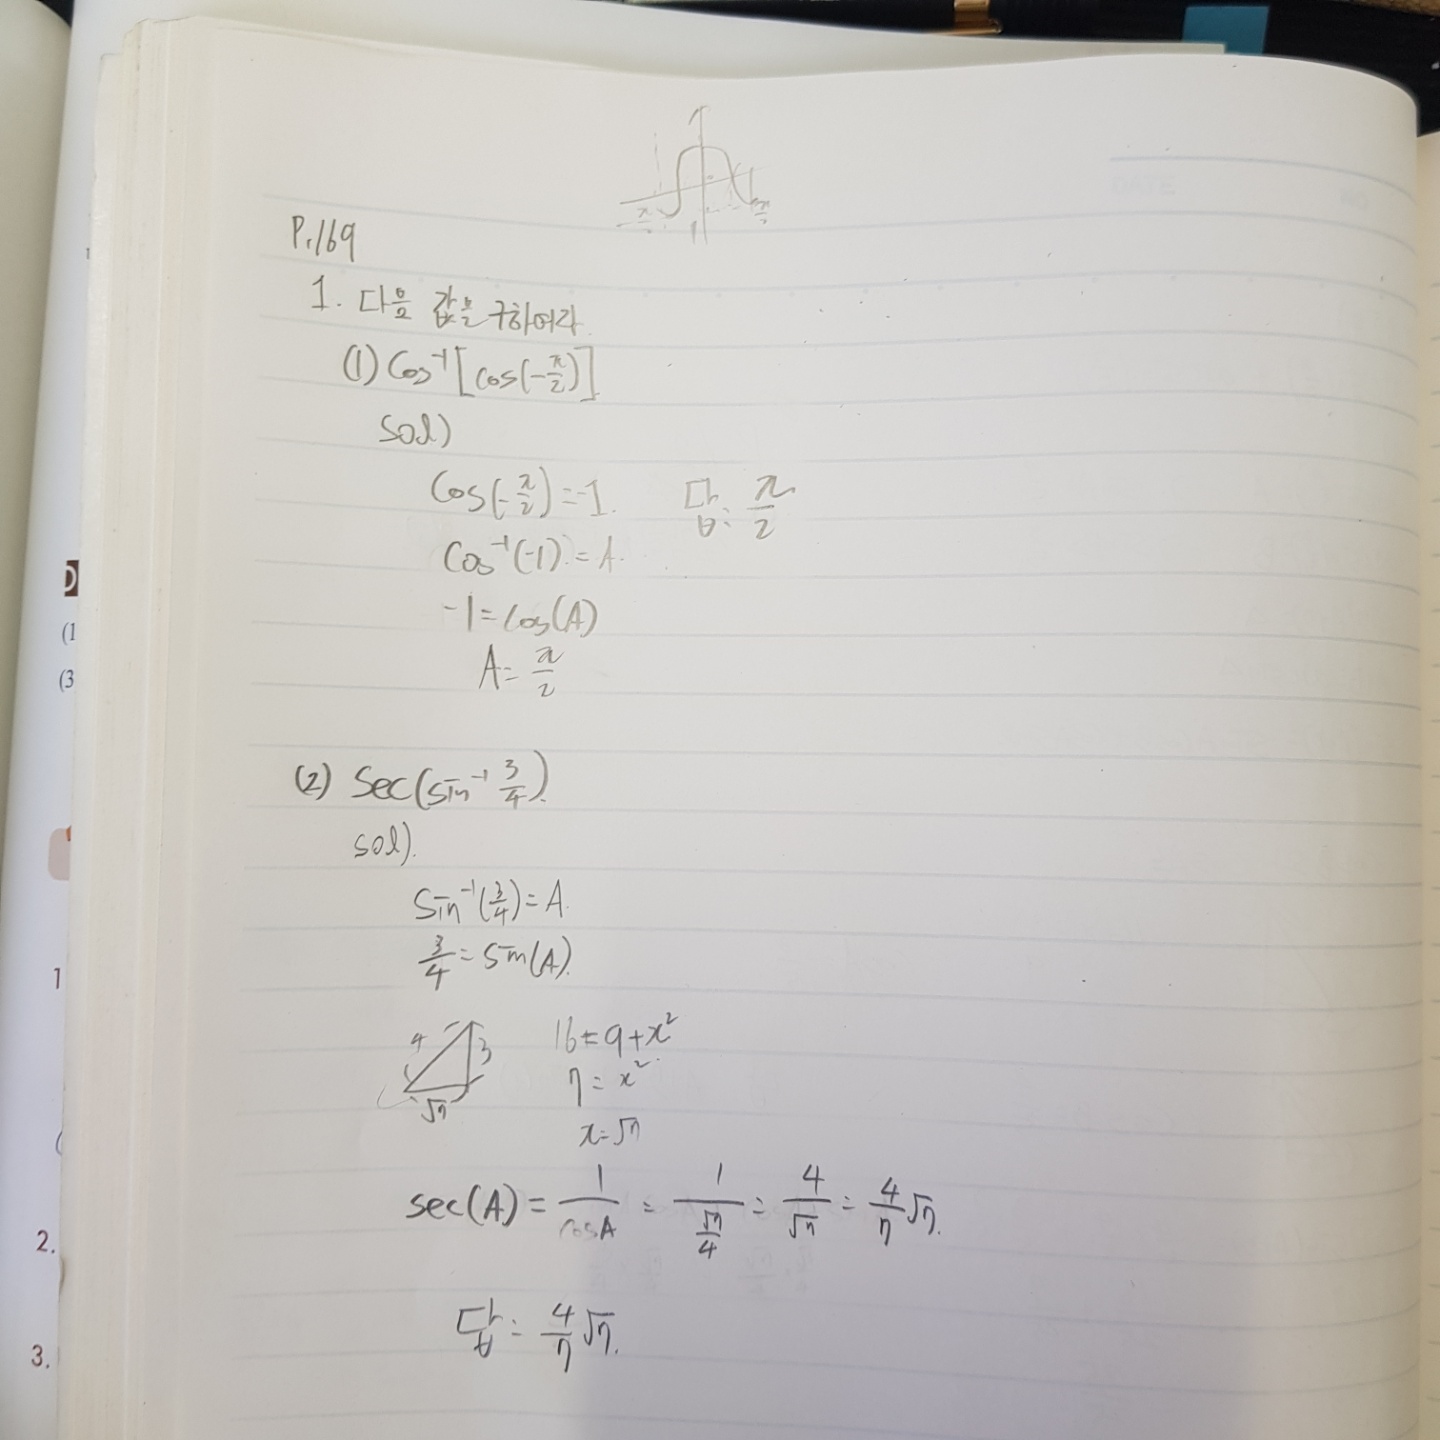 P.169
1. 다음 값을 구하여라.
(1) Cos⁻¹[cos(-π/2)]
sol)
Cos(-π/2)=-1. 답: π/2
Cos⁻¹(-1)=A.
-1=cos(A)
A=π/2
(2) Sec(sin⁻¹ 3/4).
sol).
Sin⁻¹(3/4)=A.
3/4=sin(A).
4 3 16=9+x²
7=x²
√7
x=√7
sec(A)=1/cosA=1/(√7/4)=4/√7=4/7√7.
답: 4/7√7.
D
(1
(3
1
(
2.
3.